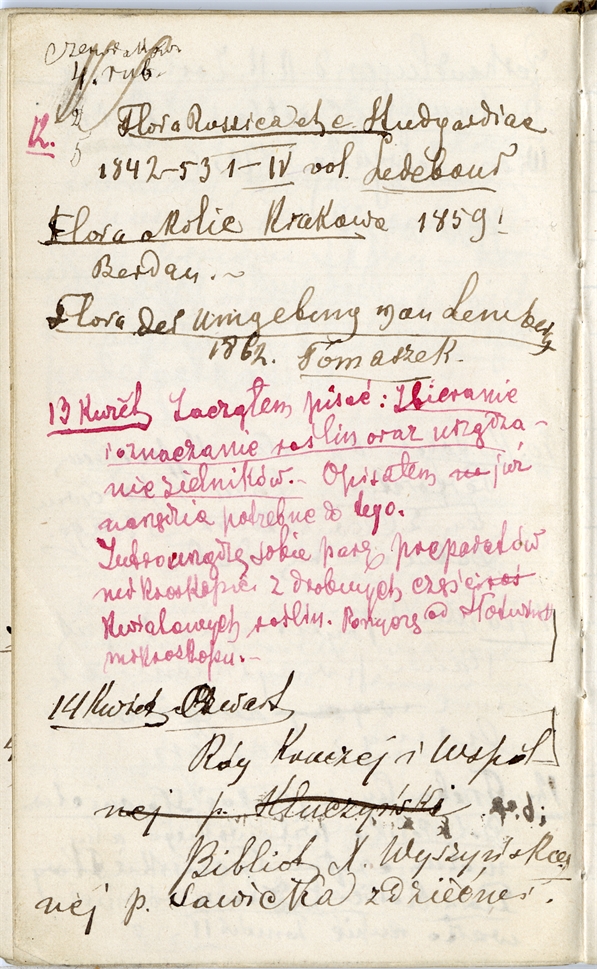 4. rub.
2
R.
5
Flora Rossica etc. Studgardiae
1842-53 I-IV vol. Ledebour
Flora okolic Krakowa 1859!
Berdau.~
Flora der Umgebung von Lemberg
1862. Tomaszek.
13 Kwiet Zacząłem pisać: Zbieranie
i oznaczanie roślin oraz urządza-
nie zielników.- Opisałem na już
narzędzia potrzebne do tego.
Jutro urządzę sobie parę preparatów
mikroskopic z drobnych części roś
kwiatowych roślin. Pożyczę od
mikroskopu.-
14 Kwiet Czwart
Róg Kruczej i Wspól
nej p. Kluczyński
Bibliot X Wyszyńska
nej p. Sawicka z dziećmi.